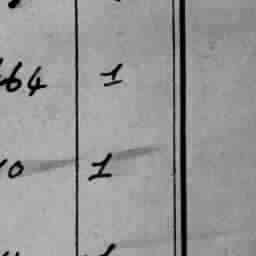 64 1
0 1